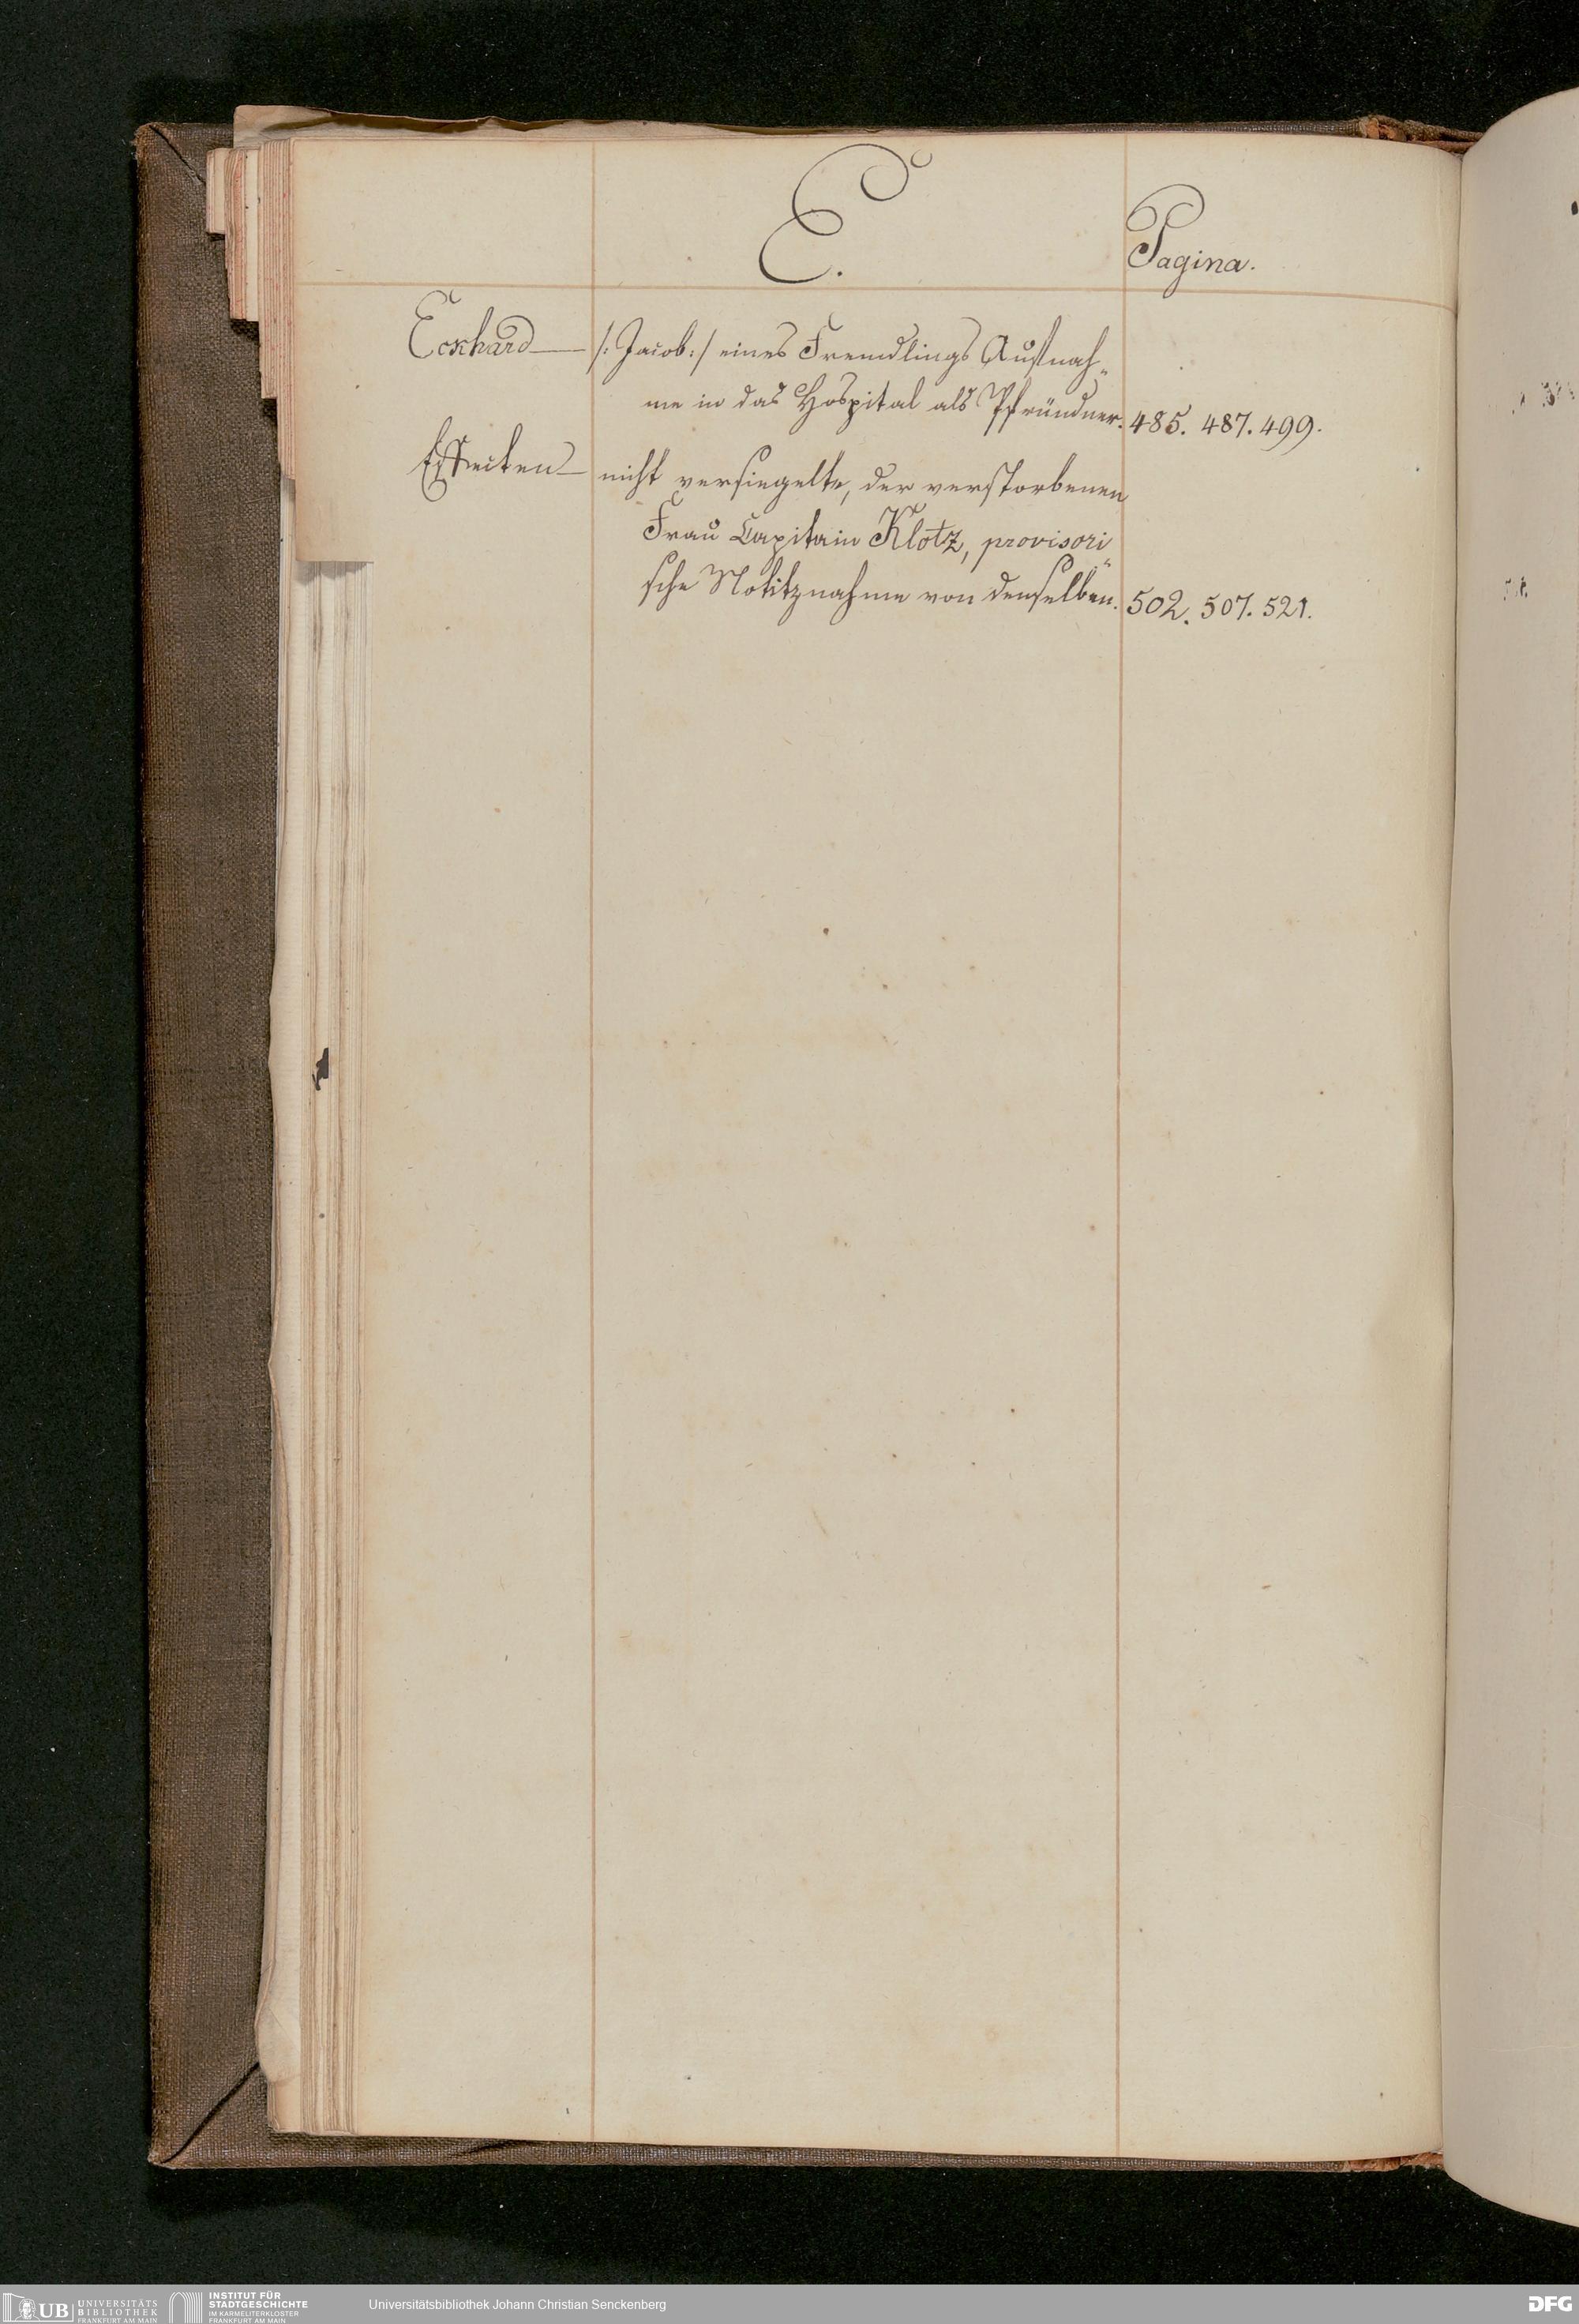 E.
Pagina.
Eckhard — /: Jacob :/ eines Fremdlings Aufnah„
me in das Hospital als Pfründner. 485. 487. 499.
Effecten — nicht versiegelte, der verstorbenen
Frau Capitain Klotz, provisori„
sche Notitznahme von denselben. 502. 507. 521.
UB UNIVERSITÄTS
BIBLIOTHEK
FRANKFURT AM MAIN
INSTITUT FÜR
STADTGESCHICHTE
IM KARMELITERKLOSTER
FRANKFURT AM MAIN
Universitätsbibliothek Johann Christian Senckenberg
DFG